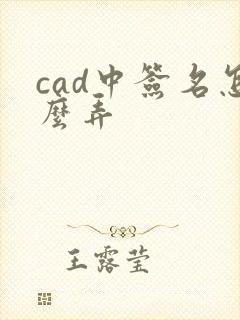 cad中簽名怎
麼弄
王露莹